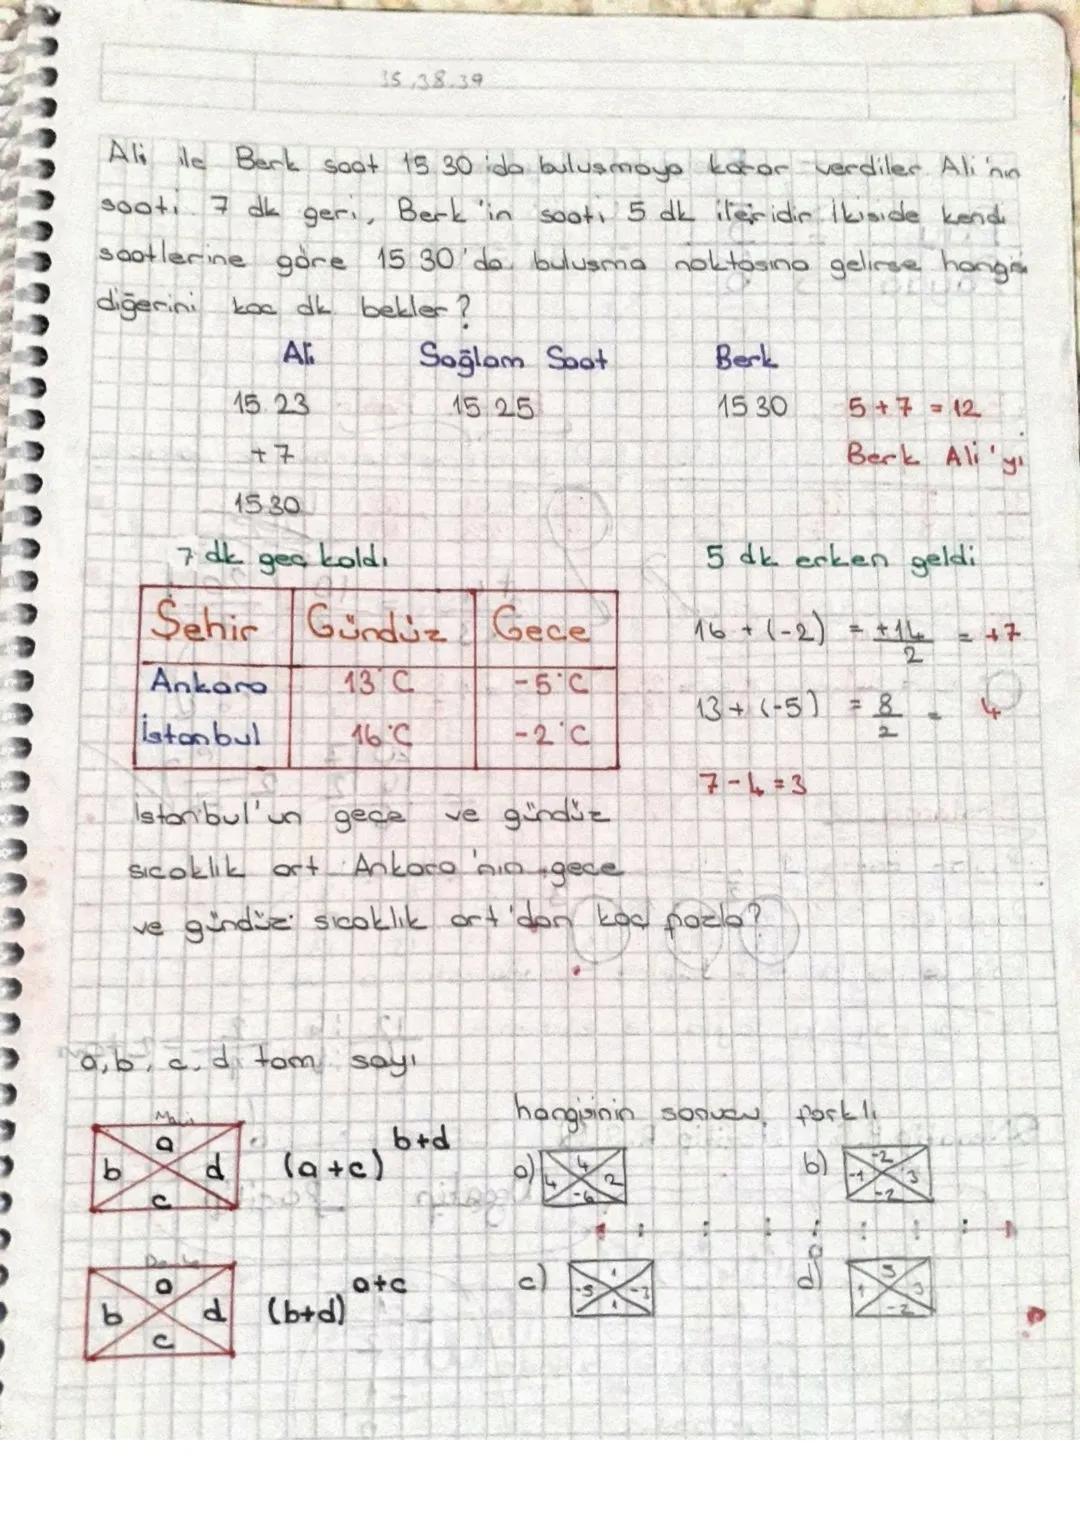 15,38,39
Ali ile Berk saat 15 30 ida buluşmaya karar verdiler Ali'nin
saati 7 dk geri, Berk'in saati 5 dk ileridir İkiside kendi
saatlerine göre 15 30'da buluşma noktasına gelirse hangi
diğerini kaç dk bekler?
Ali Sağlam Saat Berk
15 23 15 25 15 30 5 + 7 = 12
+ 7 Berk Ali'yi
15 30
7 dk geç kaldı 5 dk erken geldi
Şehir Gündüz Gece 16 + (-2) = +14/2 = +7
Ankara 13°C -5°C 13 + (-5) = 8/2 = 4
İstanbul 16°C -2°C
7 - 4 = 3
İstanbul'un gece ve gündüz
sıcaklık ort Ankara'nın gece
ve gündüz sıcaklık ort'dan kaç fazla?
a, b, c, d tam sayı
hangisinin sonucu farklı
Mavi
a b c d (a+c)^b+d a) 4 4 2 -6 b) -2 -1 3 -2
a b c d (b+d)^a+c c) d)